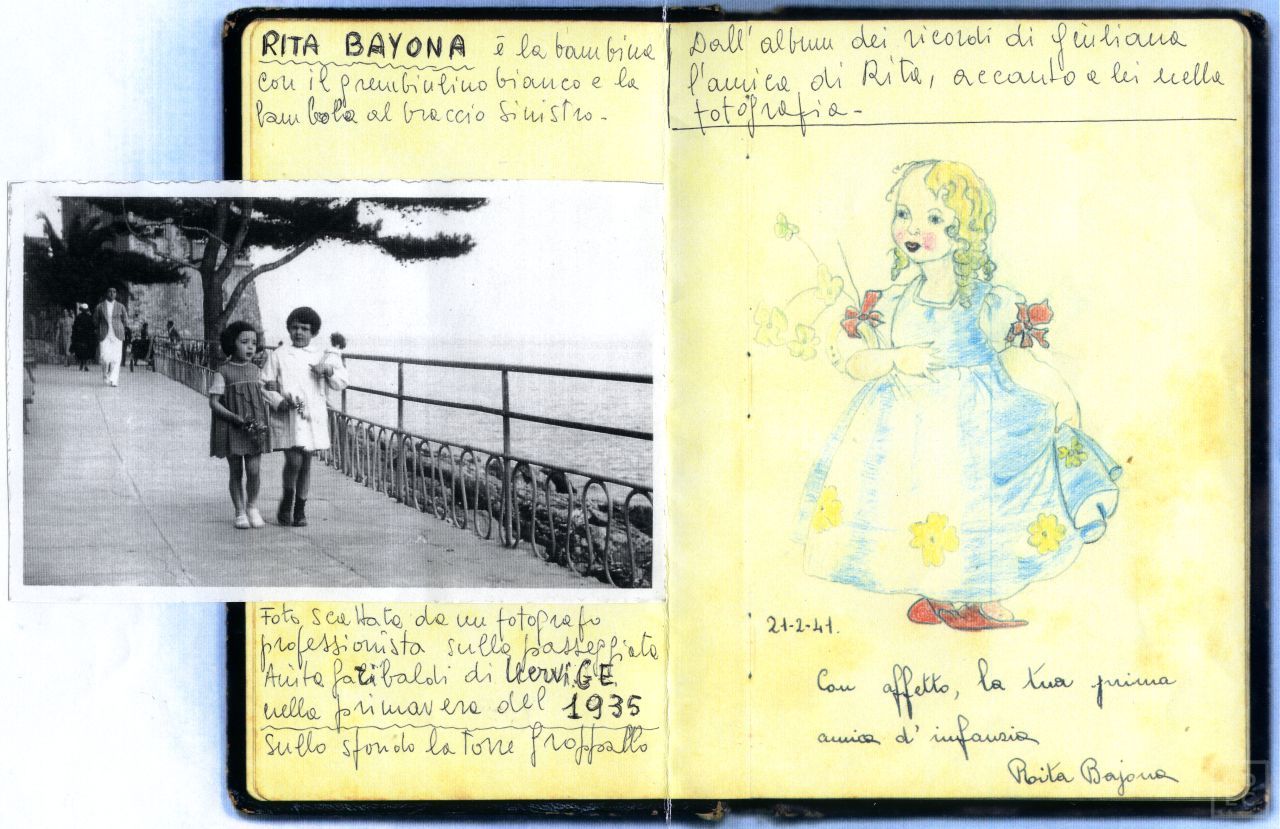 RITA BAYONA è la bambina
con il grembiulino bianco e la
bambola al braccio sinistro.
Foto scattata da un fotografo
professionista sulla passeggiata
Anita Garibaldi di Nervi GE
nella primavera del 1935
Sullo sfondo la Torre Groppallo
Dall'album dei ricordi di Giuliana
l'amica di Rita, accanto a lei nella
fotografia.
21-2-41.
Con affetto, la tua prima
amica d'infanzia
Rita Bajona